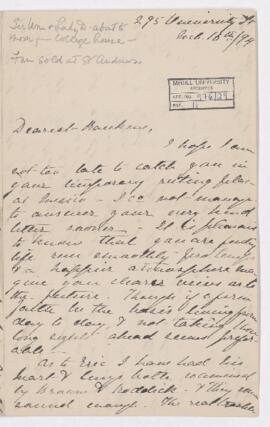 Sir Wm & Lady D. about to
move from College house -
Farm sold at St Andrews
295 University St
Oct. 16th/94
McGILL UNIVERSITY
ARCHIVES
ACC. NO. 976/29
REF. 11
Dearest
I hope I am
not too late to catch you in
your temporary resting place
at I do not manage
to answer your very kind
letter sooner - It is pleasant
to know that you are finding
life run smoothly
& a happier atmosphere may
give you clearer views as to
the future. Though a
faith in the living from
day to day, & not taking
long sight ahead seems prefer-
able -
As to Eric I have had his
heart & lungs both examined
by & Roddick - & they are
sound enough. The real trouble